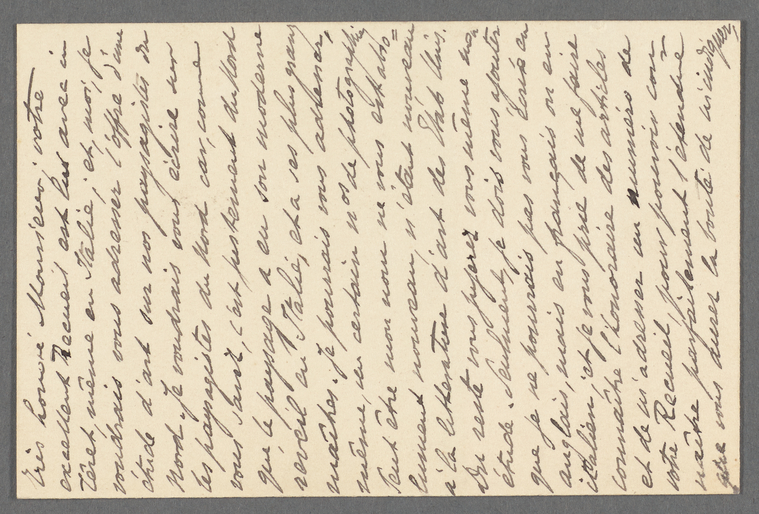 Très honoré Monsieur, votre
excellent Recueil est lus avec in
téret même en Italie; et moi, je
voudrais vous adresser l'offre d'une
étude d'art sur nos paysagistes du
Nord. Je voudrais vous écrire sur
les paysagistes du Nord car, comme
vous savez, c'est justement du Nord
que le paysage a eu son moderne
reveil en Italie, et a ses plus grans
maîtres. Je pourrais vous adresser,
même, un certain nos de photographies
Peut être mon nom ne vous est abso=
lument nouveau, n'étant nouveau
à la litterature d'art des Etats Unis.
Du reste vous jugerez vous même mon
étude. Seulment, je dois vous ajouter
que je ne pourrais pas vous écrire en
anglais, mais en français ou en
italien; et je vous prie de me faire
connaître l'honoraire des articles
et de m'adresser un numéro de
votre Recueil pour pouvoir con
naître parfaitement l'étendue
que vous aurez la bonté de m'indiquer,